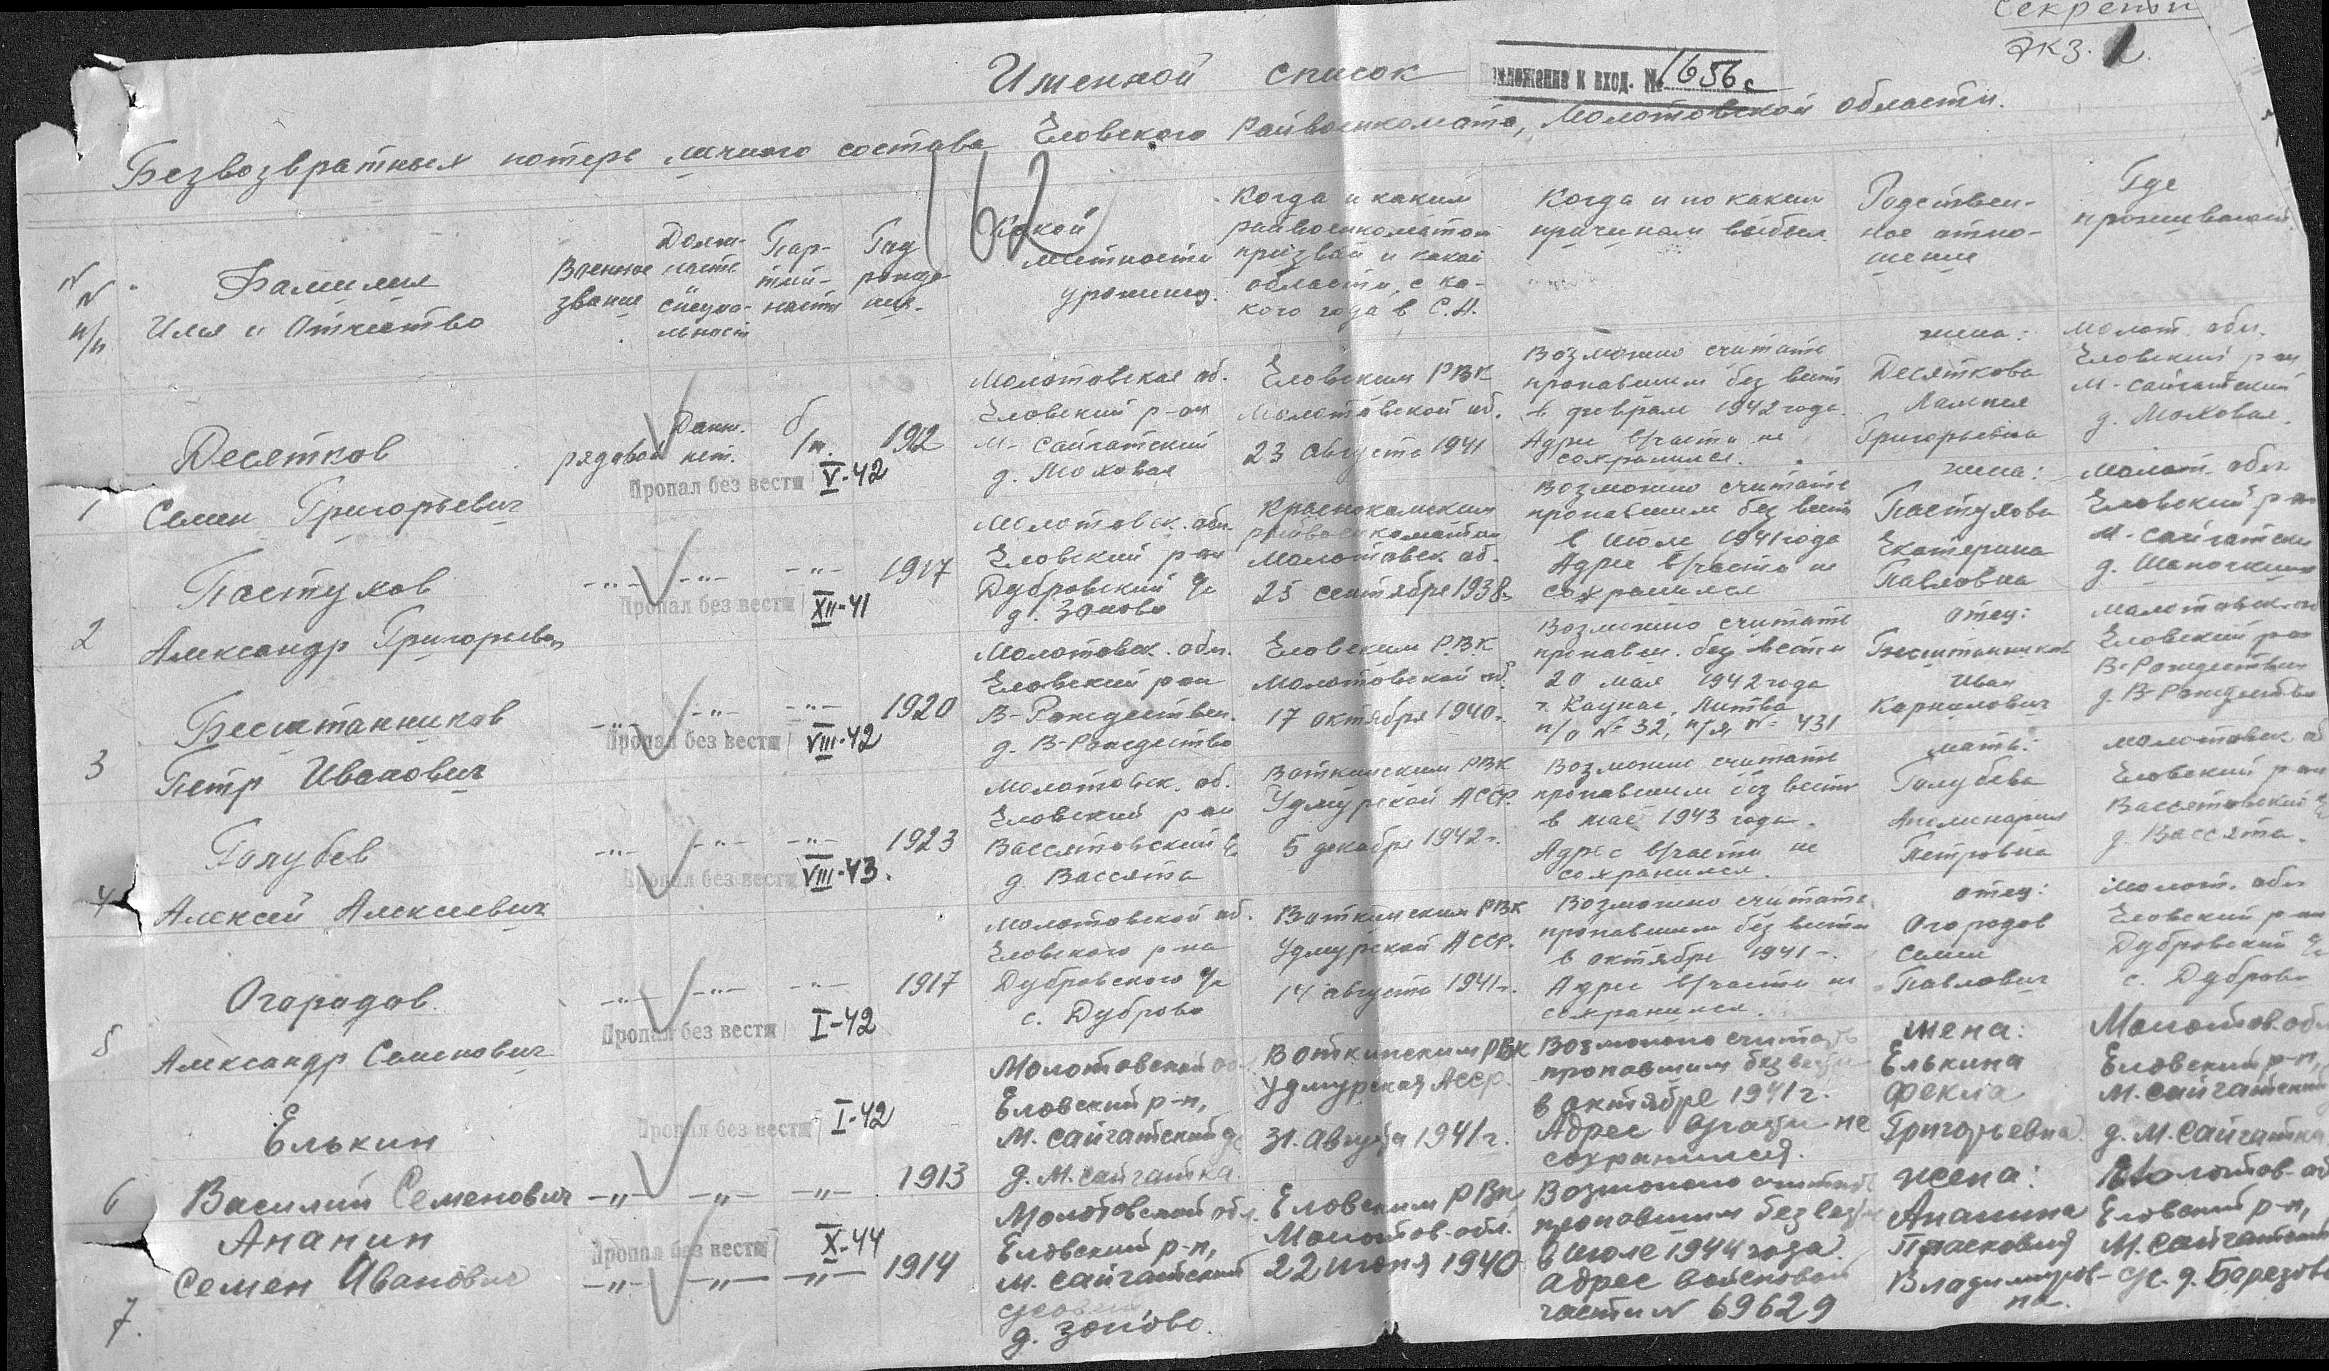 Секретн
Экз. 1.
Именной список
Приложение к вход. № 1656с
Безвозвратных потерь личного состава Еловского Райвоенкомата, Молотовской области.
162
№ № п/п
Фамилия
Имя и Отчество
Военное
звание
Долж-
ность
специа-
льность
Пар-
тий-
ность
Год
рожде-
ния.
Какой
местности
уроженец.
Когда и каким
райвоенкоматом
призван и какой
области, с ка-
кого года в С.А.
Когда и по каким
причинам выбыл
Родствен-
ное отно-
шение
Где
проживают
1
Десятков
Семен Григорьевич
рядовой
Данн.
нет.
б/п.
1912
Пропал без вести V-42
Молотовская об.
Еловский р-он
М-Сайгатский
д. Моховая
Еловским РВК
Молотовской об.
23 августа 1941
Возможно считать
пропавшим без вести
в феврале 1942 года.
Адрес в/части не
сохранился.
жена:
Десяткова
Григорьевна
Молот. обл.
Еловский р-он
М-Сайгатский
д. Моховая.
2
Пастухов
Александр Григорьевич
-"- -"- -"- 1917
Пропал без вести XII-41
Молотовск. обл.
Еловский р-он
Дубровский с/с
д. Заново
Краснокамским
райвоенкоматом
Молотовск. об.
25 сентября 1938г.
Возможно считать
пропавшим без вести
в июле 1941 года
Адрес в/части не
сохранился
жена:
Пастухова
Екатерина
Павловна
Молот. обл.
Еловский р-он
М-Сайгатски
д.
3
Бесштанников
Петр Иванович
-"- -"- -"- 1920
Пропал без вести VIII-42
Молотовск. обл.
Еловский р-он
В-Рождествен.
д. В-Рождество
Еловским РВК
Молотовской об.
17 октября 1940г.
Возможно считать
пропавш. без вести
20 мая 1942 года
г. Каунас, Литва
п/о № 32, п/я, № 431
отец:
Бесштанников
Иван
Карпилович
Молотовск. об
Еловский р-он
В-Рождествен
д. В-Рождество
4
Голубев
Алексей Алексеевич
-"- -"- -"- 1923
Пропал без вести VIII-43.
Молотовск. об.
Еловский р-он
Вассятовский с
д. Вассята
Воткинским РВК
Удмурской АССР.
5 декабря 1942г.
Возможно считать
пропавшим без вести
в мае 1943 года.
Адрес в/части не
сохранился.
мать:
Голубева
Аполинария
Петровна
Молотовск. об
Еловский р-он
Вассятовский
д. Вассята.
5
Огородов
Александр Семенович
-"- -"- -"- 1917
Пропал без вести I-42
Молотовской об.
Еловского р-на
Дубровского с/с
с. Дуброво
Воткинским РВК
Удмурской АССР.
14 августа 1941г.
Возможно считать
пропавшим без вести
в октябре 1941г.
Адрес в/части не
сохранился.
отец:
Огородов
Семен
Павлович
Молот. обл
Еловский р-он
Дубровский с/с
с. Дуброво
6
Елькин
Василий Семенович
-"- -"- -"- 1913
Пропал без вести I-42
Молотовской об
Еловский р-н,
М. Сайгатский с/с
д. М. Сайгатка.
Воткинским РВК
Удмурская АССР.
31. августа 1941г.
Возможно считать
пропавшим без вести
в октябре 1941г.
Адрес в/части не
сохранился.
жена:
Елькина
Фекла
Григорьевна.
Молотов. обл
Еловский р-н,
М. Сайгатский
д. М. Сайгатка
7.
Ананин
Семен Иванович
-"- -"- -"- 1914
Пропал без вести X-44
Молотовской обл.
Еловский р-н,
М. Сайгатский
д. Заново.
Еловским РВК,
Молотов. обл.
22 июня 1940
Возможно считать
пропавшим без вести
в июле 1944 года.
адрес войсковой
части № 69629
жена:
Ананина
Прасковия
Владимиров-
на.
Молотов. об
Еловский р-н,
М. Сайгатский
с/с. д. Березов